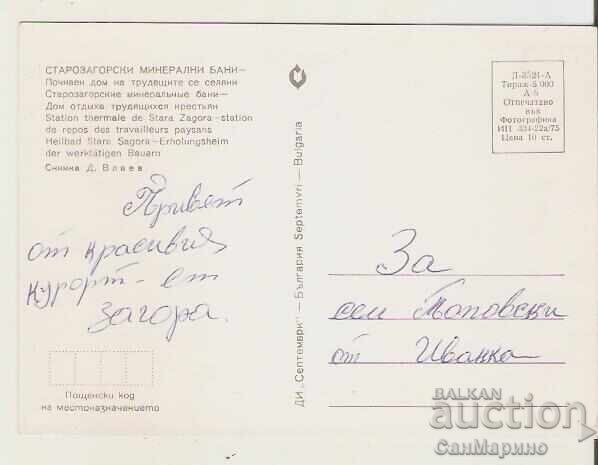 СТАРОЗАГОРСКИ МИНЕРАЛНИ БАНИ—
Почивен дом на трудещите се селяни
Старозагорские минеральные бани—
Дом отдыха трудящихся крестьян
Station thermale de Stara Zagora—station
de repos des travailleurs paysans
Heilbad Stara Sagora—Erholungsheim
der werktätigen Bauern
Снимка Д. Влаев
Привет
от красивия
курорт - ст
Загора.
Пощенски код
на местоназначението
ДИ „Септември" — България Septemvri — Bulgaria
Д-3521-А
Тираж 5 000
А 6
Отпечатано
във
Фотографика
ИП 434-22а/75
Цена 10 ст.
За
сем Топовски
от Иванка
BALKAN
auction
СанМарино